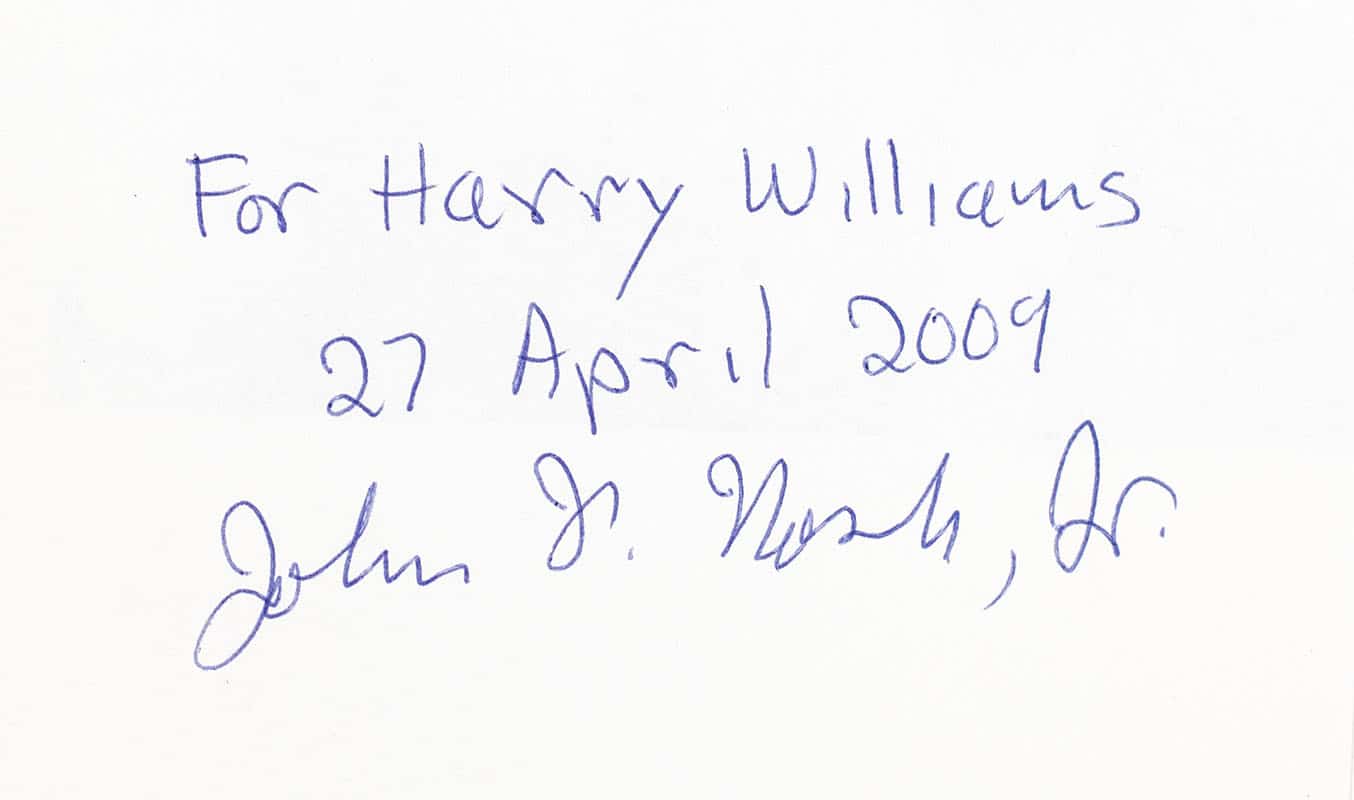 For Harry Williams
27 April 2009
John F. Nash, Jr.